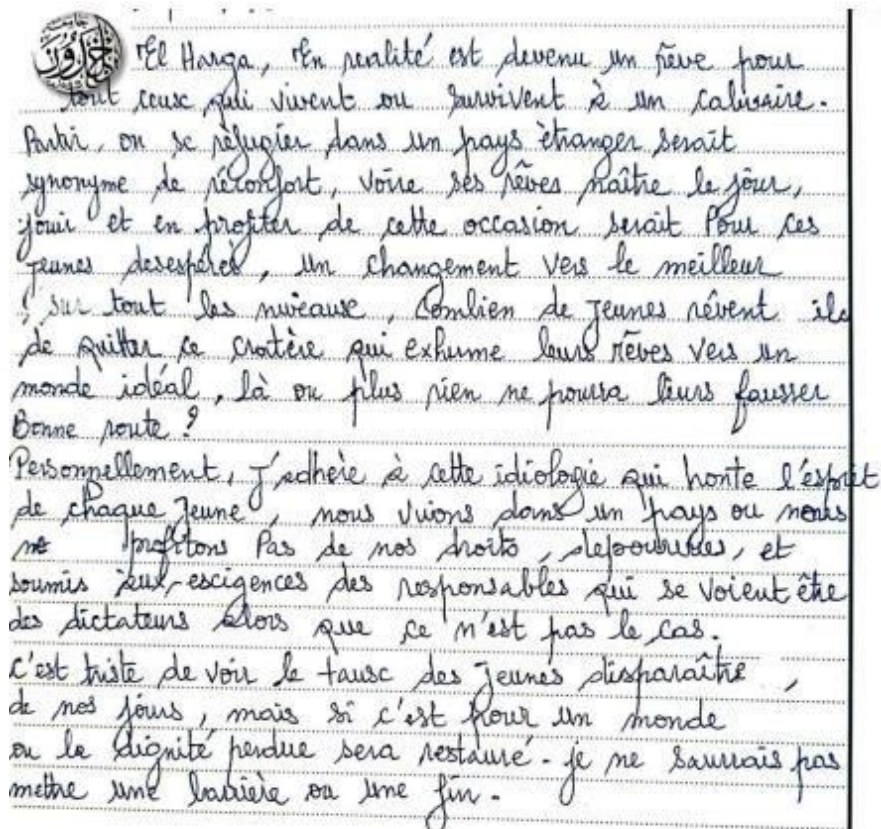 El Harga, En realité est devenu un rêve pour
tout ceux qui vivent ou survivent à un calvaire.
Partir, ou se réfugier dans un pays ètranger serait
synonyme de réconfort, voire ses rêves naître le jour,
jouir et en profiter de cette occasion serait Pour ces
jeunes desespérés, un changement vers le meilleur
sur tout les niveaux, Combien de jeunes rêvent ils
de quitter ce cratère qui exhume leurs rêves vers un
monde idéal, là ou plus rien ne pourra leurs fausser
Bonne route ?
Personnellement, J'adhère à cette idiologie qui honte l'esprit
de chaque jeune, nous vivons dans un pays ou nous
ne profitons Pas de nos droits, et
soumis aux exigences des responsables qui se voient être
des dictateurs alors que ce n'est pas le cas.
C'est triste de voir le taux des jeunes disparaître,
de nos jours, mais si c'est pour un monde
ou la dignité perdue sera restauré. je ne saurrais pas
mettre une barrière ou une fin.